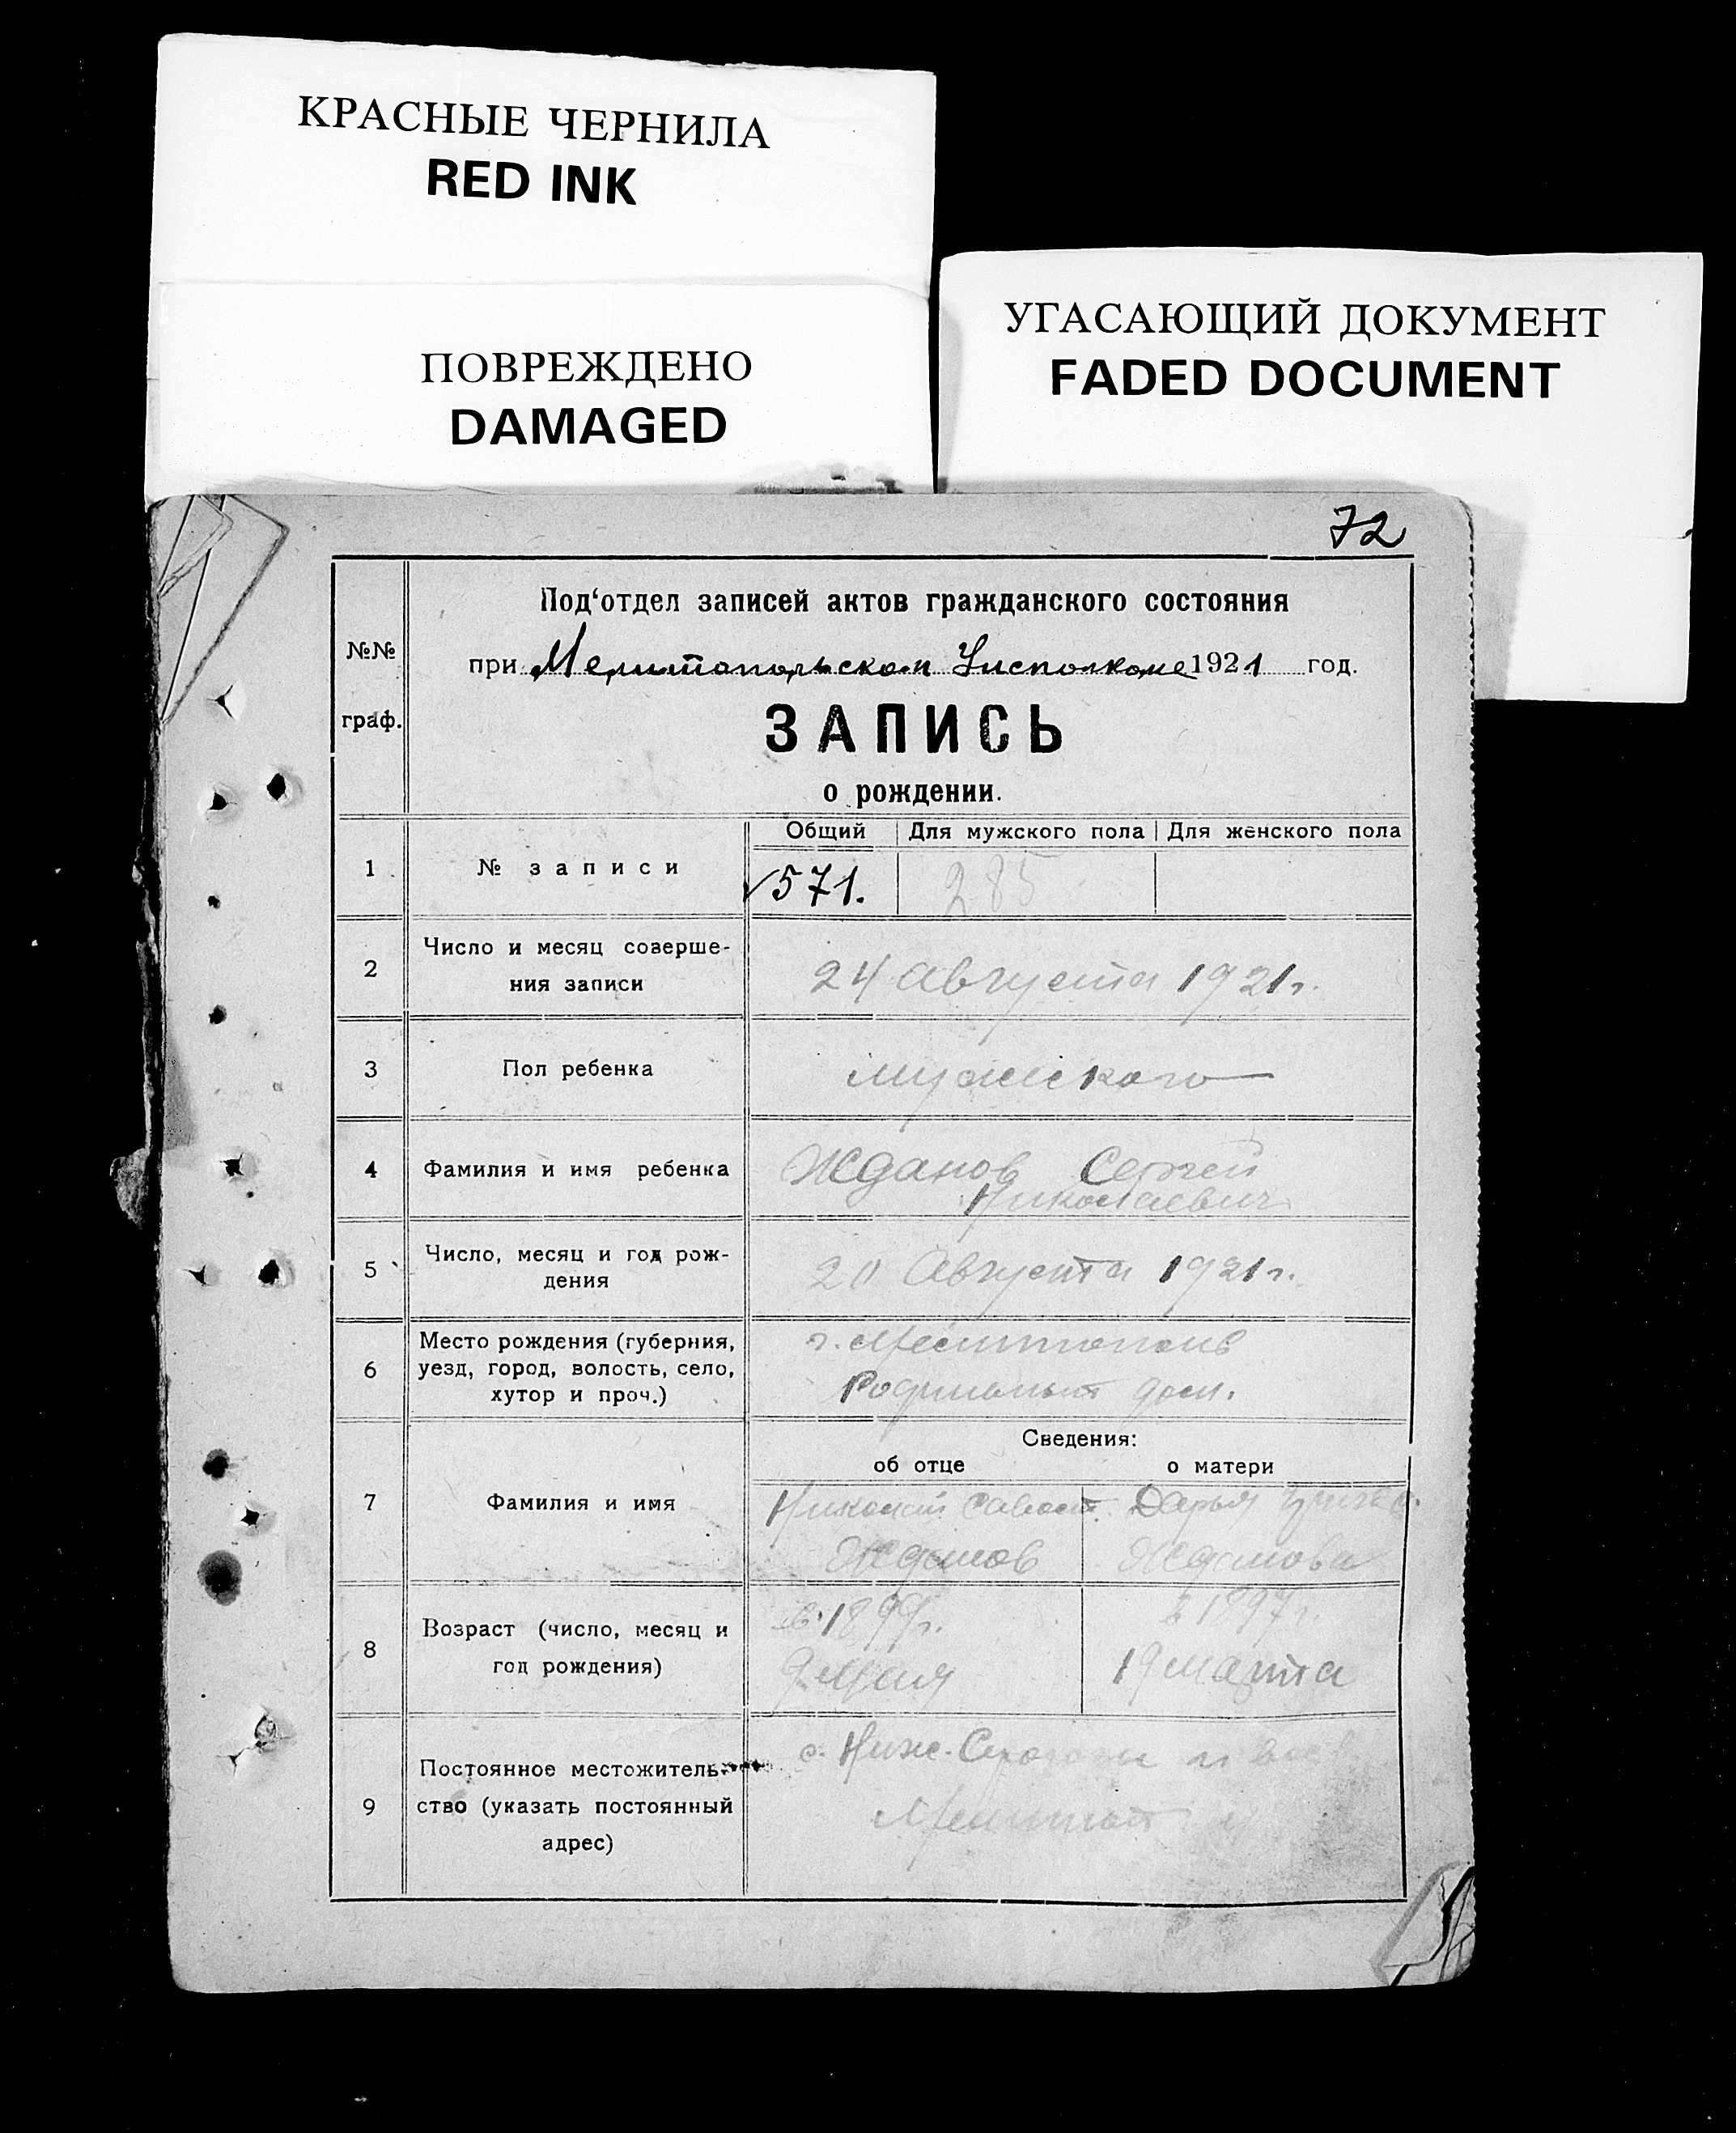 КРАСНЫЕ ЧЕРНИЛА
RED INK
ПОВРЕЖДЕНО
DAMAGED
УГАСАЮЩИЙ ДОКУМЕНТ
FADED DOCUMENT
72
№№
граф.
Под‘отдел записей актов гражданского состояния
при Мелитопольском Уисполкоме 1921 год.
ЗАПИСЬ
о рождении.
Общий Для мужского пола Для женского пола
1 № записи 571. 285
2 Число и месяц соверше-
ния записи
24 Августа 1921 г.
3 Пол ребенка мужского
4 Фамилия и имя ребенка Жданов Сергей
Николаевич
5 Число, месяц и год рож-
дения
20 Августа 1921 г.
6 Место рождения (губерния,
уезд, город, волость, село,
хутор и проч.)
г. Мелитополь
Родильный дом.
Сведения:
об отце о матери
7 Фамилия и имя
Николай Савост. Дарья
Жданов Жданова
8 Возраст (число, месяц и
год рождения)
в 1899 г. в 1897 г.
9 Мая 19 марта
9 Постоянное местожитель-
ство (указать постоянный
адрес)
с. Ниж. Серогозы
Мелитоп у